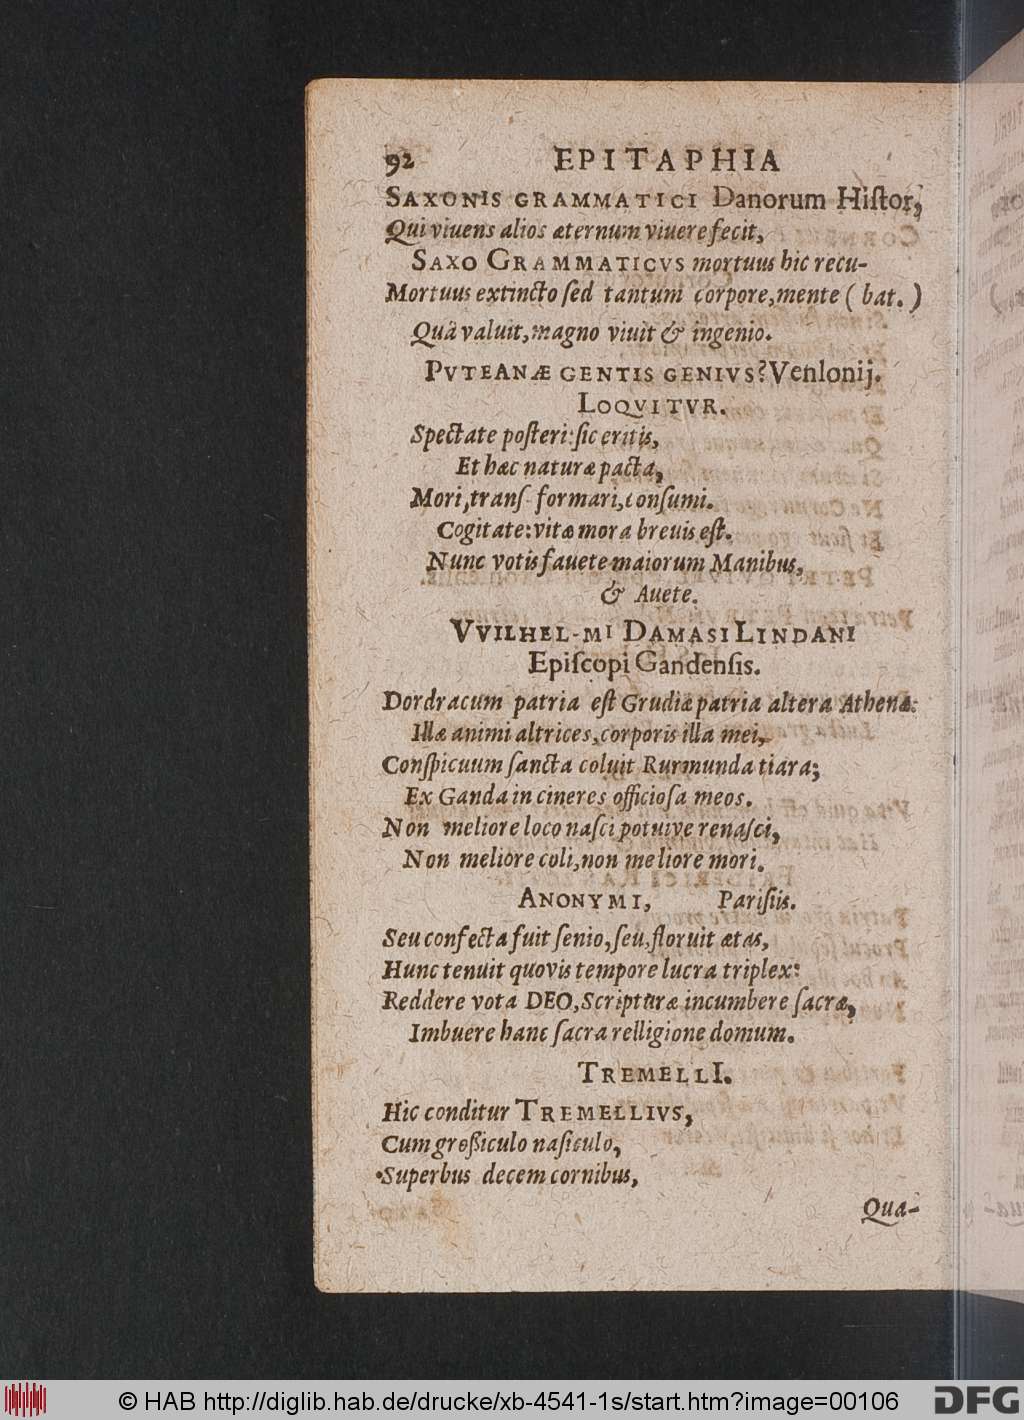 92 EPITAPHIA
SAXONIS GRAMMATICI Danorum Hiſtor,
Qui viuens alios æternum viuere fecit,
SAXO GRAMMATICVS mortuus hic recu-
Mortuus extincto ſed tantum corpore, mente (bat.)
Quâ valuit, magno viuit & ingenio.
PVTEANÆ GENTIS GENIVS? Venlonij.
LOQVITVR.
Spectate poſteri: ſic eritis,
Et hæc naturæ pacta,
Mori, trans-formari, conſumi.
Cogitate: vitæ mora breuis eſt.
Nunc votis fauete maiorum Manibus,
& Auete.
VVILHEL-MI DAMASI LINDANI
Epiſcopi Gandenſis.
Dordracum patria eſt Grudiæ patria altera Athenæ:
Illæ animi altrices, corporis illa mei,
Conſpicuum ſancta coluit Rurmunda tiara;
Ex Ganda in cineres officioſa meos.
Non meliore loco naſci potuive renaſci,
Non meliore coli, non meliore mori.
ANONYMI, Pariſiis.
Seu confecta fuit ſenio, ſeu, floruit ætas,
Hunc tenuit quovis tempore lucra triplex:
Reddere vota DEO, Scripturæ incumbere ſacræ,
Imbuere hanc ſacra relligione domum.
TREMELLI.
Hic conditur TREMELLIVS,
Cum groſſiculo naſiculo,
Superbus decem cornibus,
Qua-
© HAB http://diglib.hab.de/drucke/xb-4541-1s/start.htm?image=00106
DFG